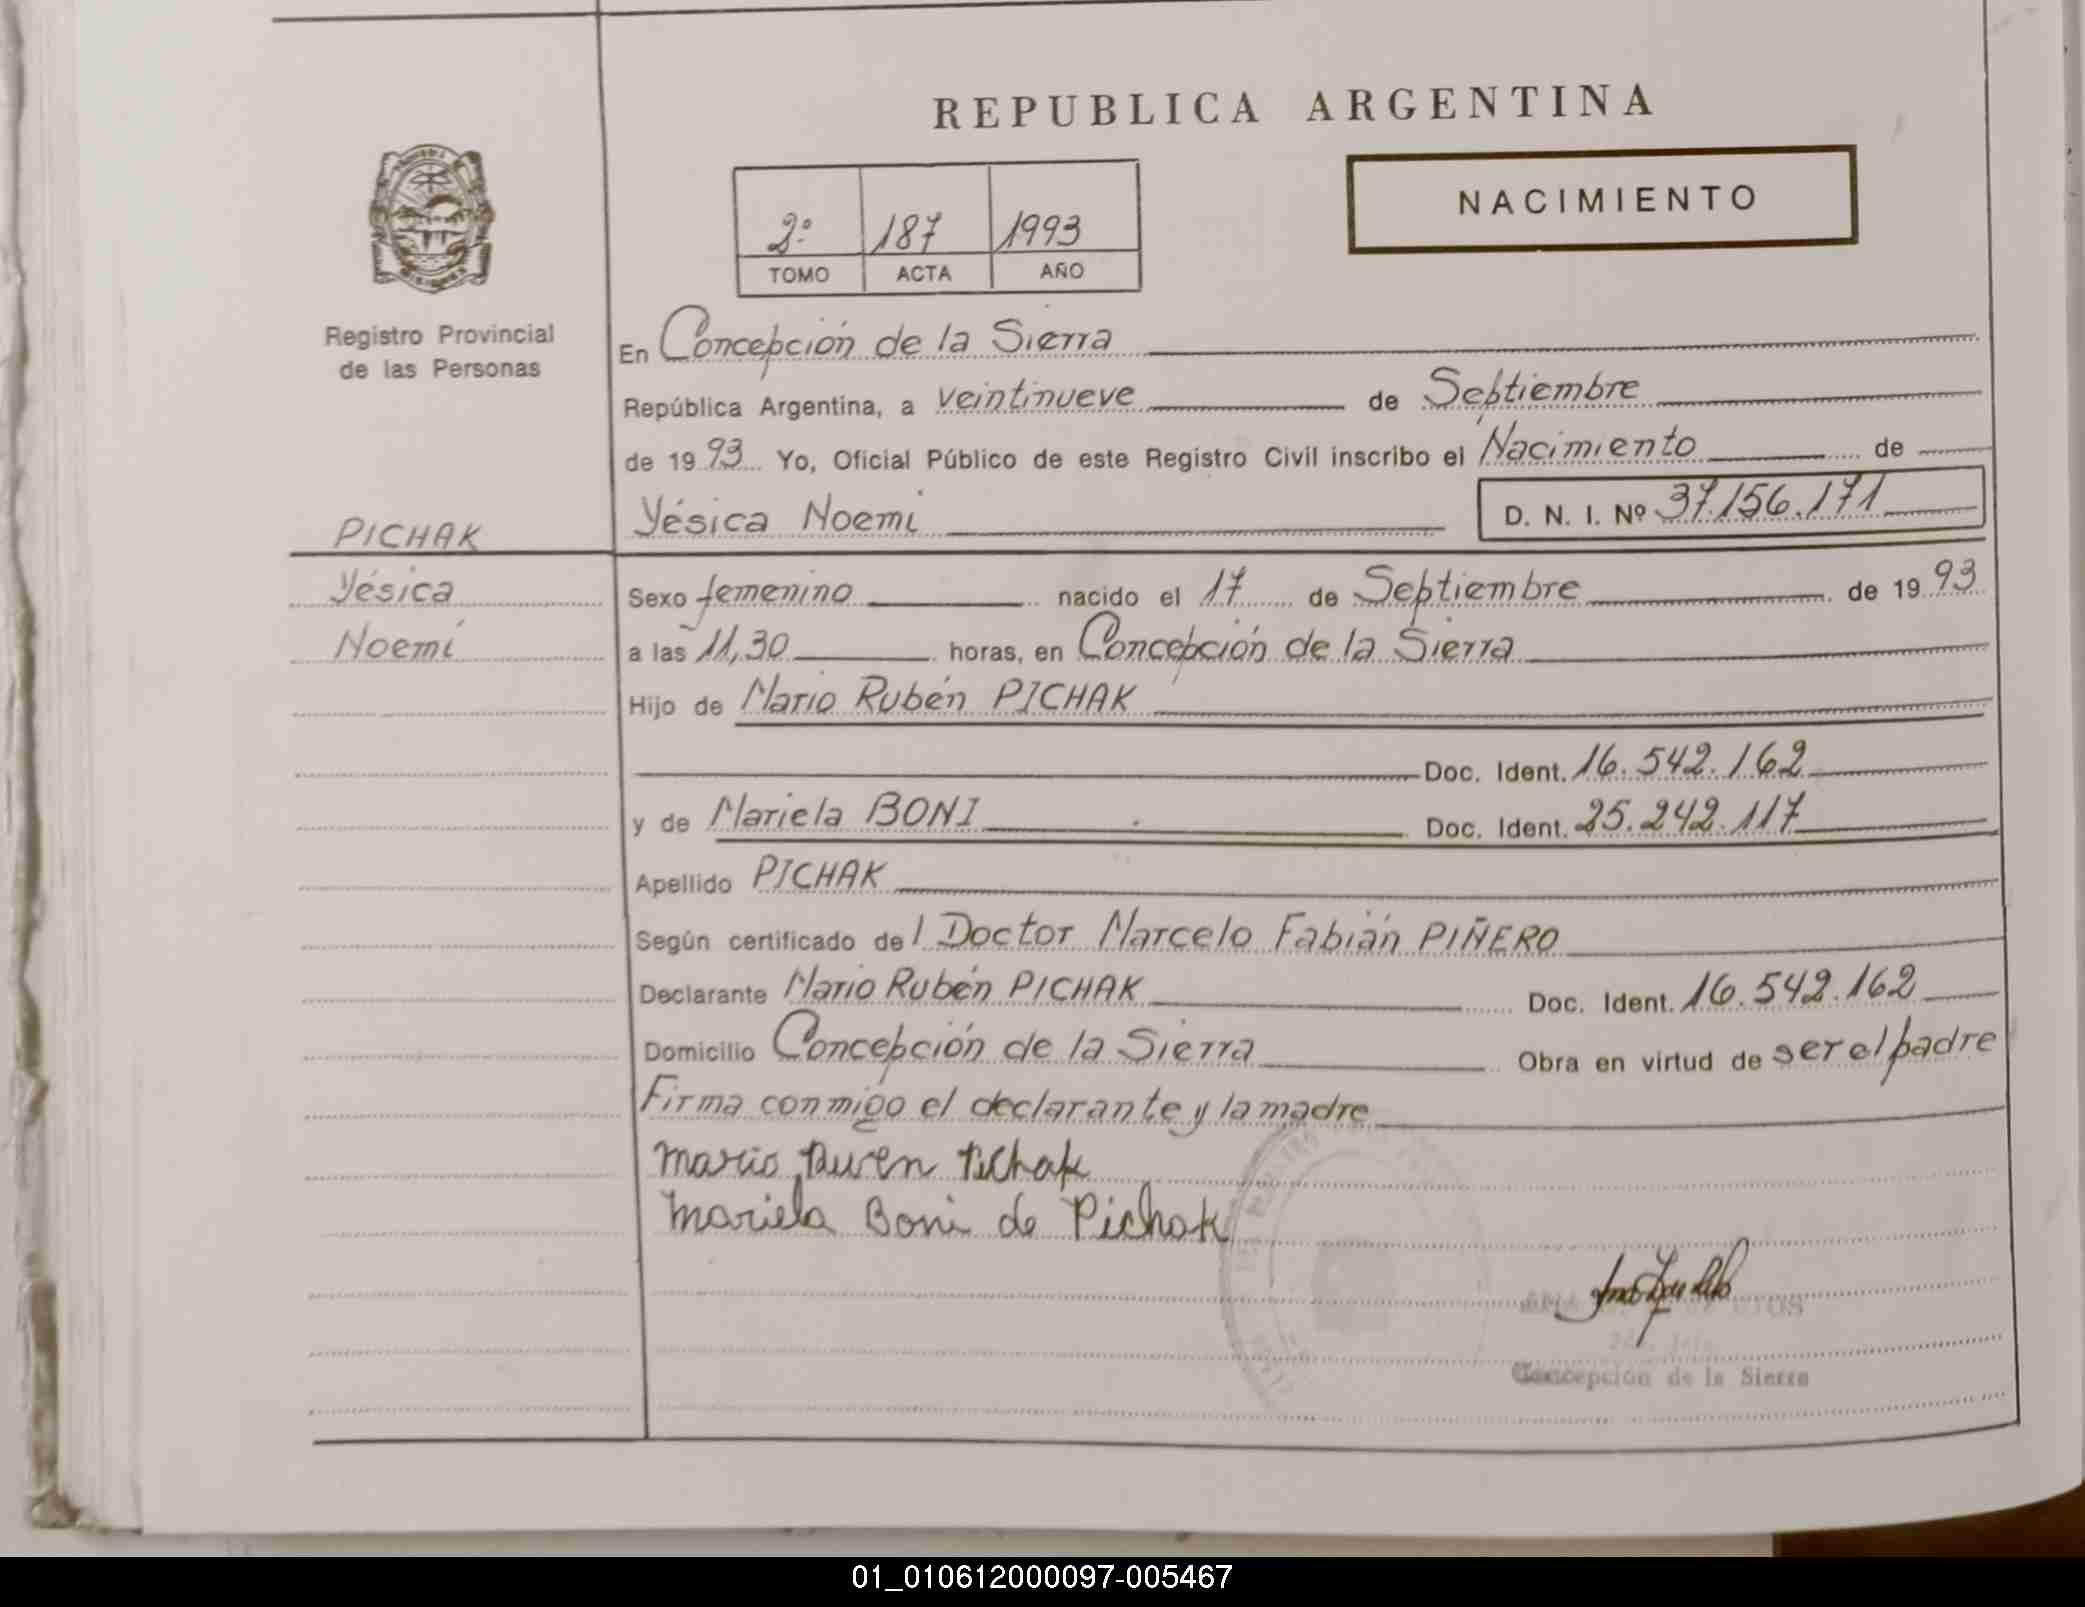 REPUBLICA ARGENTINA
NACIMIENTO
2º 187 1993
TOMO ACTA AÑO
Registro Provincial
de las Personas
En Concepción de la Sierra
República Argentina, a veintinueve de Septiembre
de 1993 Yo, Oficial Público de este Registro Civil inscribo el Nacimiento de
PICHAK
Yésica Noemi
D. N. I. Nº 37.156.171
Yésica
Noemí
Sexo femenino nacido el 17 de Septiembre de 1993
a las 11,30 horas, en Concepción de la Sierra
Hijo de Mario Rubén PICHAK
Doc. Ident. 16.542.162
y de Mariela BONI Doc. Ident. 25.242.117
Apellido PICHAK
Según certificado del Doctor Marcelo Fabián PIÑERO
Declarante Mario Rubén PICHAK Doc. Ident. 16.542.162
Domicilio Concepción de la Sierra Obra en virtud de ser el padre
Firma conmigo el declarante y la madre
Mario Ruven Pichak
Mariela Boni de Pichak
Concepción de la Sierra
01_010612000097-005467